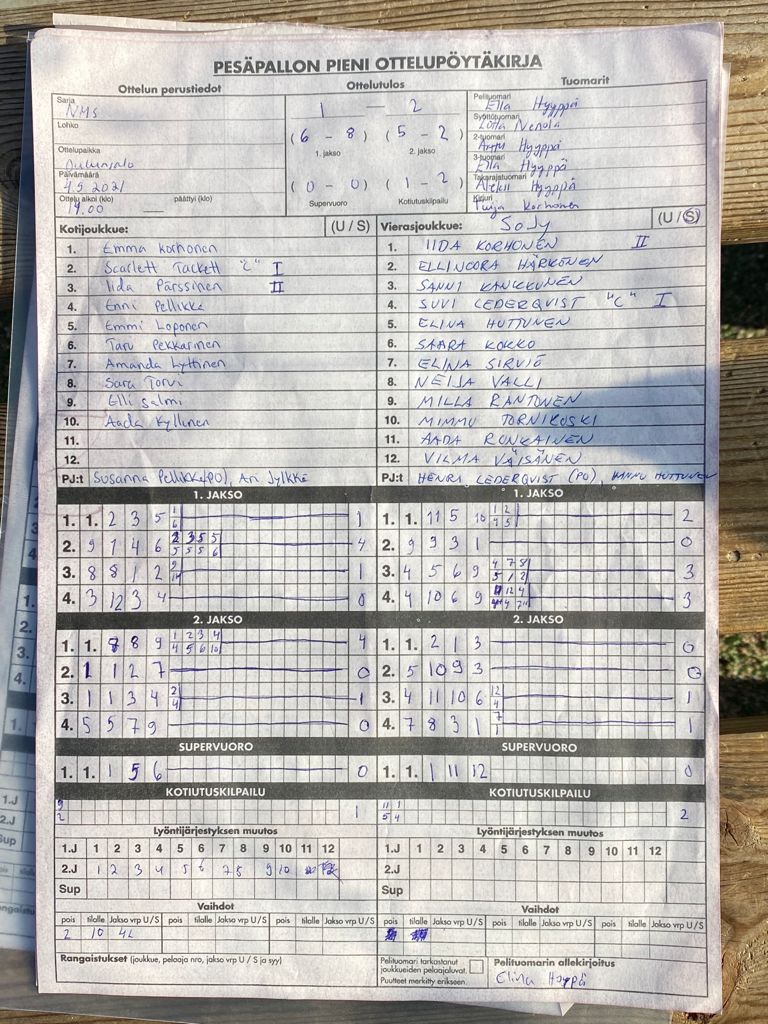 PESÄPALLON PIENI OTTELUPÖYTÄKIRJA
Ottelun perustiedot Ottelutulos Tuomarit
Sarja NMS
Lohko
Ottelupaikka
Päivämäärä 4.9.2021
Ottelu alkoi (klo) 19.00 päättyi (klo)
1 – 2
(6 – 8) (5 – 2)
1. jakso 2. jakso
(0 – 0) (1 – 2)
Supervuoro Kotiutuskilpailu
Pelituomari Ella Hyyppä
Syöttötuomari Lotta Nenola
2-tuomari Arttu Hyyppä
3-tuomari Ella Hyyppä
Takarajatuomari Aleksi Hyyppä
Kirjuri Tuija Korhonen
Kotijoukkue: (U / S) Vierasjoukkue: SoJy (U / S)
1. Emma Korhonen
2. Scarlett Tackett "C" I
3. Iida Pärssinen II
4. Enni Pellikka
5. Emmi Loponen
6. Taru Pekkarinen
7. Amanda Lyttinen
8. Sara Torvi
9. Elli Salmi
10. Aada Kyllinen
11.
12.
PJ:t Susanna Pellikka (PO), Ari Jylkkä
1. IIDA KORHONEN II
2. ELLINOORA HÄRKÖNEN
3. SANNI KANKKUNEN
4. SUVI LEDERQVIST "C" I
5. ELINA HUTTUNEN
6. SAARA KOKKO
7. ELINA SIRVIÖ
8. NEIJA VALLI
9. MILLA RANTONEN
10. MIMMU TORNIKOSKI
11. AADA RONKAINEN
12. VILMA VÄISÄNEN
PJ:t HENRI LEDERQVIST (PO), HANNU HUTTUNEN
1. JAKSO 1. JAKSO
1. 1. 2 3 5 1 6 1
2. 9 1 4 6 2 3 5 5 5 5 5 6 4
3. 8 8 1 2 1
4. 3 12 3 4 0
1. 1. 11 5 10 1 2 4 5 2
2. 9 9 3 1 0
3. 4 5 6 9 4 7 8 5 1 2 3
4. 4 10 6 9 3
2. JAKSO 2. JAKSO
1. 1. 8 9 1 2 3 4 4 5 6 10 4
2. 1 1 2 7 0
3. 1 1 3 4 2 4 1
4. 5 5 7 9 0
1. 1. 2 1 3 0
2. 5 10 9 3 0
3. 4 11 10 6 12 4 1
4. 7 8 3 1 7 1 1
SUPERVUORO SUPERVUORO
1. 1. 1 5 6 0
1. 1. 1 11 12 0
KOTIUTUSKILPAILU KOTIUTUSKILPAILU
9 2 1
11 1 5 4 2
Lyöntijärjestyksen muutos Lyöntijärjestyksen muutos
1.J 1 2 3 4 5 6 7 8 9 10 11 12
2.J 1 2 3 4 5 6 7 8 9 10
Sup
1.J 1 2 3 4 5 6 7 8 9 10 11 12
2.J
Sup
Vaihdot Vaihdot
pois tilalle Jakso vrp U / S pois tilalle Jakso vrp U / S pois tilalle Jakso vrp U / S
2 10 4L
pois tilalle Jakso vrp U / S pois tilalle Jakso vrp U / S pois tilalle Jakso vrp U / S
Rangaistukset (joukkue, pelaaja nro, jakso vrp U / S ja syy)
Pelituomari tarkastanut joukkueiden pelaajaluvat.
Puutteet merkitty erikseen.
Pelituomarin allekirjoitus